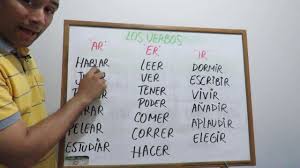 LOS VERBOS
"AR" "ER" "IR"
HABLAR LEER DORMIR
VER ESCRIBIR
TENER VIVIR
PODER AÑADIR
PELEAR COMER APLAUDIR
ESTUDIAR CORRER ELEGIR
HACER